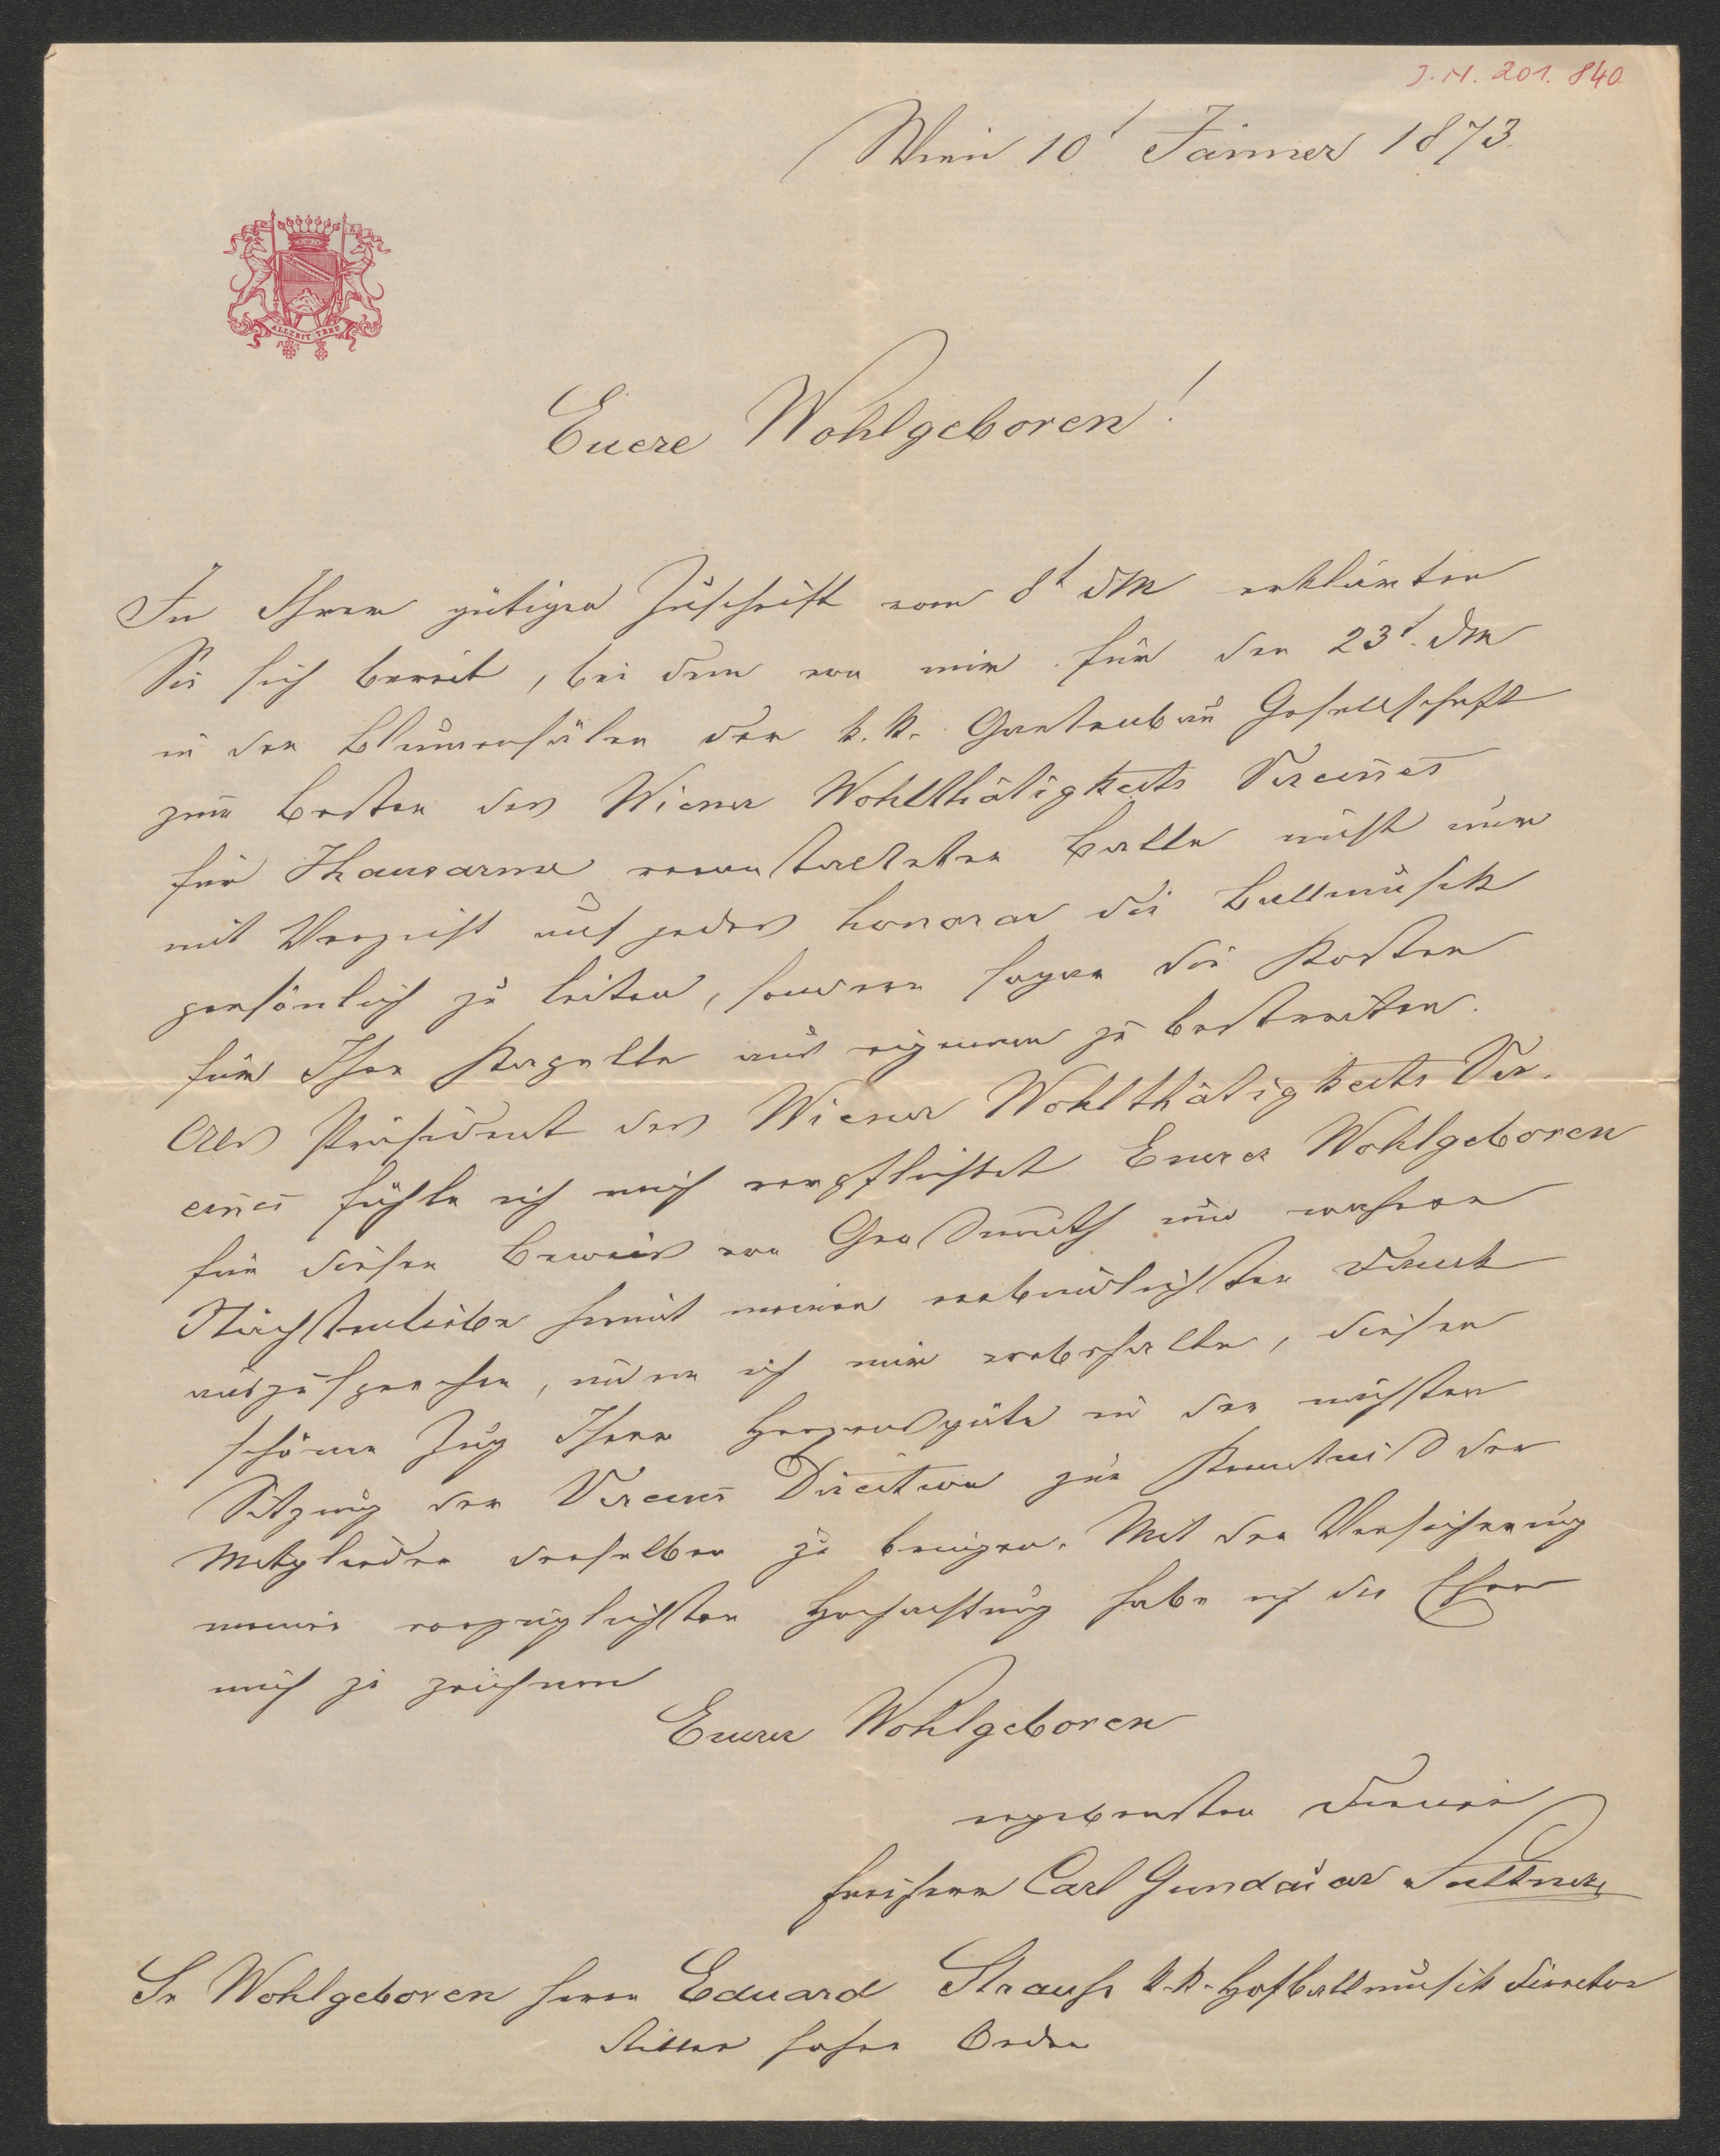 J.N. 201.840
Wien 10t Jänner 1873.
ALLZEIT TREU
Euere Wohlgeboren!
In Ihrer gütigen Zuschrift vom 8t dM erklärten
Sie sich bereit, bei dem von mir für den 23t. dM
in den Blumensälen der k. k. Gartenbau Gesellschaft
zum Besten des Wiener Wohlthätigkeits Vereines
für Hausarme veranstalteten Balle nicht nur
mit Verzicht auf jedes Honorar die Ballmusik
persönlich zu leiten, sondern sogar die Kosten
für Ihre Kapelle aus eigenem zu bestreiten.
Als Präsident des Wiener Wohlthätigkeits Ver-
eines fühle ich mich verpflichtet Euerer Wohlgeboren
für diesen Beweis von Großmuth und wahrer
Nächstenliebe hiemit meinen verbindlichsten Dank
auszusprechen, indem ich mir vorbehalte, diesen
schönen Zug Ihrer Herzensgüte in der nächsten
Sitzung der Vereins Direction zur Kenntniß der
Mitglieder derselben zu bringen. Mit der Versicherung
meiner vorzüglichsten Hochachtung habe ich die Ehre
mich zu zeichnen
Euerer Wohlgeboren
ergebenster Diener
Freiherr Carl Gundacar Suttner
Sr Wohlgeboren Herrn Eduard Strauß k. k. Hofballmusik Director
Ritter hoher Orden